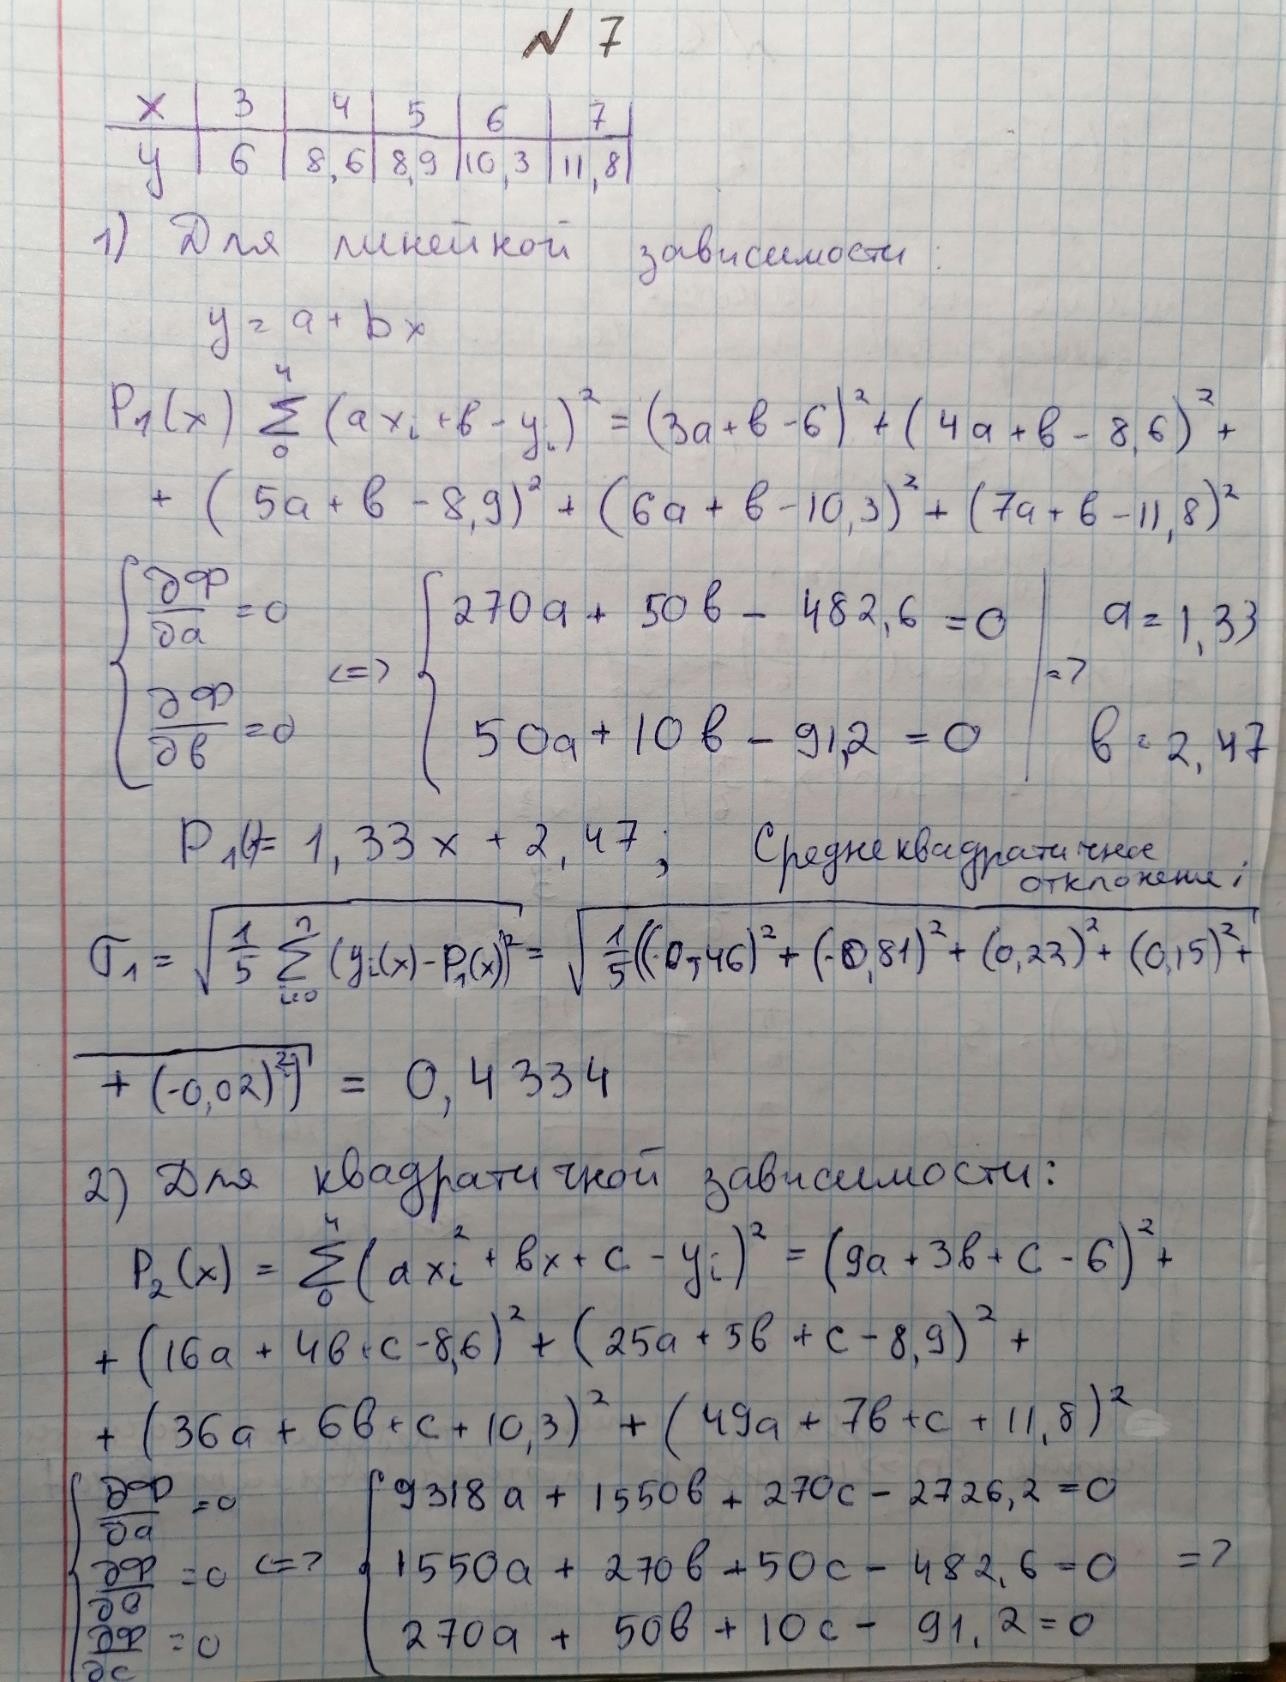 N 7
x | 3 | 4 | 5 | 6 | 7
y | 6 | 8,6 | 8,9 | 10,3 | 11,8
1) Для линейной зависимости:
y = a + bx
P₁(x) Σ₀⁴ (axᵢ + в - yᵢ)² = (3a + в - 6)² + (4a + в - 8,6)² +
+ (5a + в - 8,9)² + (6a + в - 10,3)² + (7a + в - 11,8)²
{ ∂Ф/∂a = 0 <=> { 270a + 50в - 482,6 = 0 | => a = 1,33
∂Ф/∂в = 0 50a + 10в - 91,2 = 0 в = 2,47
P₁(x) = 1,33x + 2,47; Среднеквадратичное
отклонение:
σ₁ = √(1/5 Σ (yᵢ(x) - P₁(x))² = √(1/5((-0,46)² + (-0,81)² + (0,22)² + (0,15)² +
+ (-0,02)²) = 0,4334
2) Для квадратичной зависимости:
P₂(x) = Σ₀⁴ (axᵢ² + вx + c - yᵢ)² = (9a + 3в + c - 6)² +
+ (16a + 4в + c - 8,6)² + (25a + 5в + c - 8,9)² +
+ (36a + 6в + c + 10,3)² + (49a + 7в + c + 11,8)²
{ ∂Ф/∂a = 0 { 9318a + 1550в + 270c - 2726,2 = 0
∂Ф/∂в = 0 <=> 1550a + 270в + 50c - 482,6 = 0 =>
∂Ф/∂c = 0 270a + 50в + 10c - 91,2 = 0